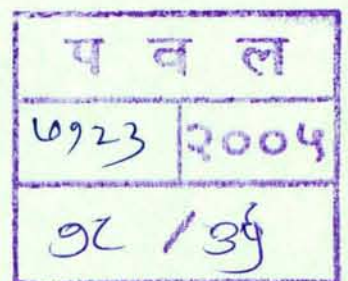 प व ल
७१२३ २००५
१८ / ३५